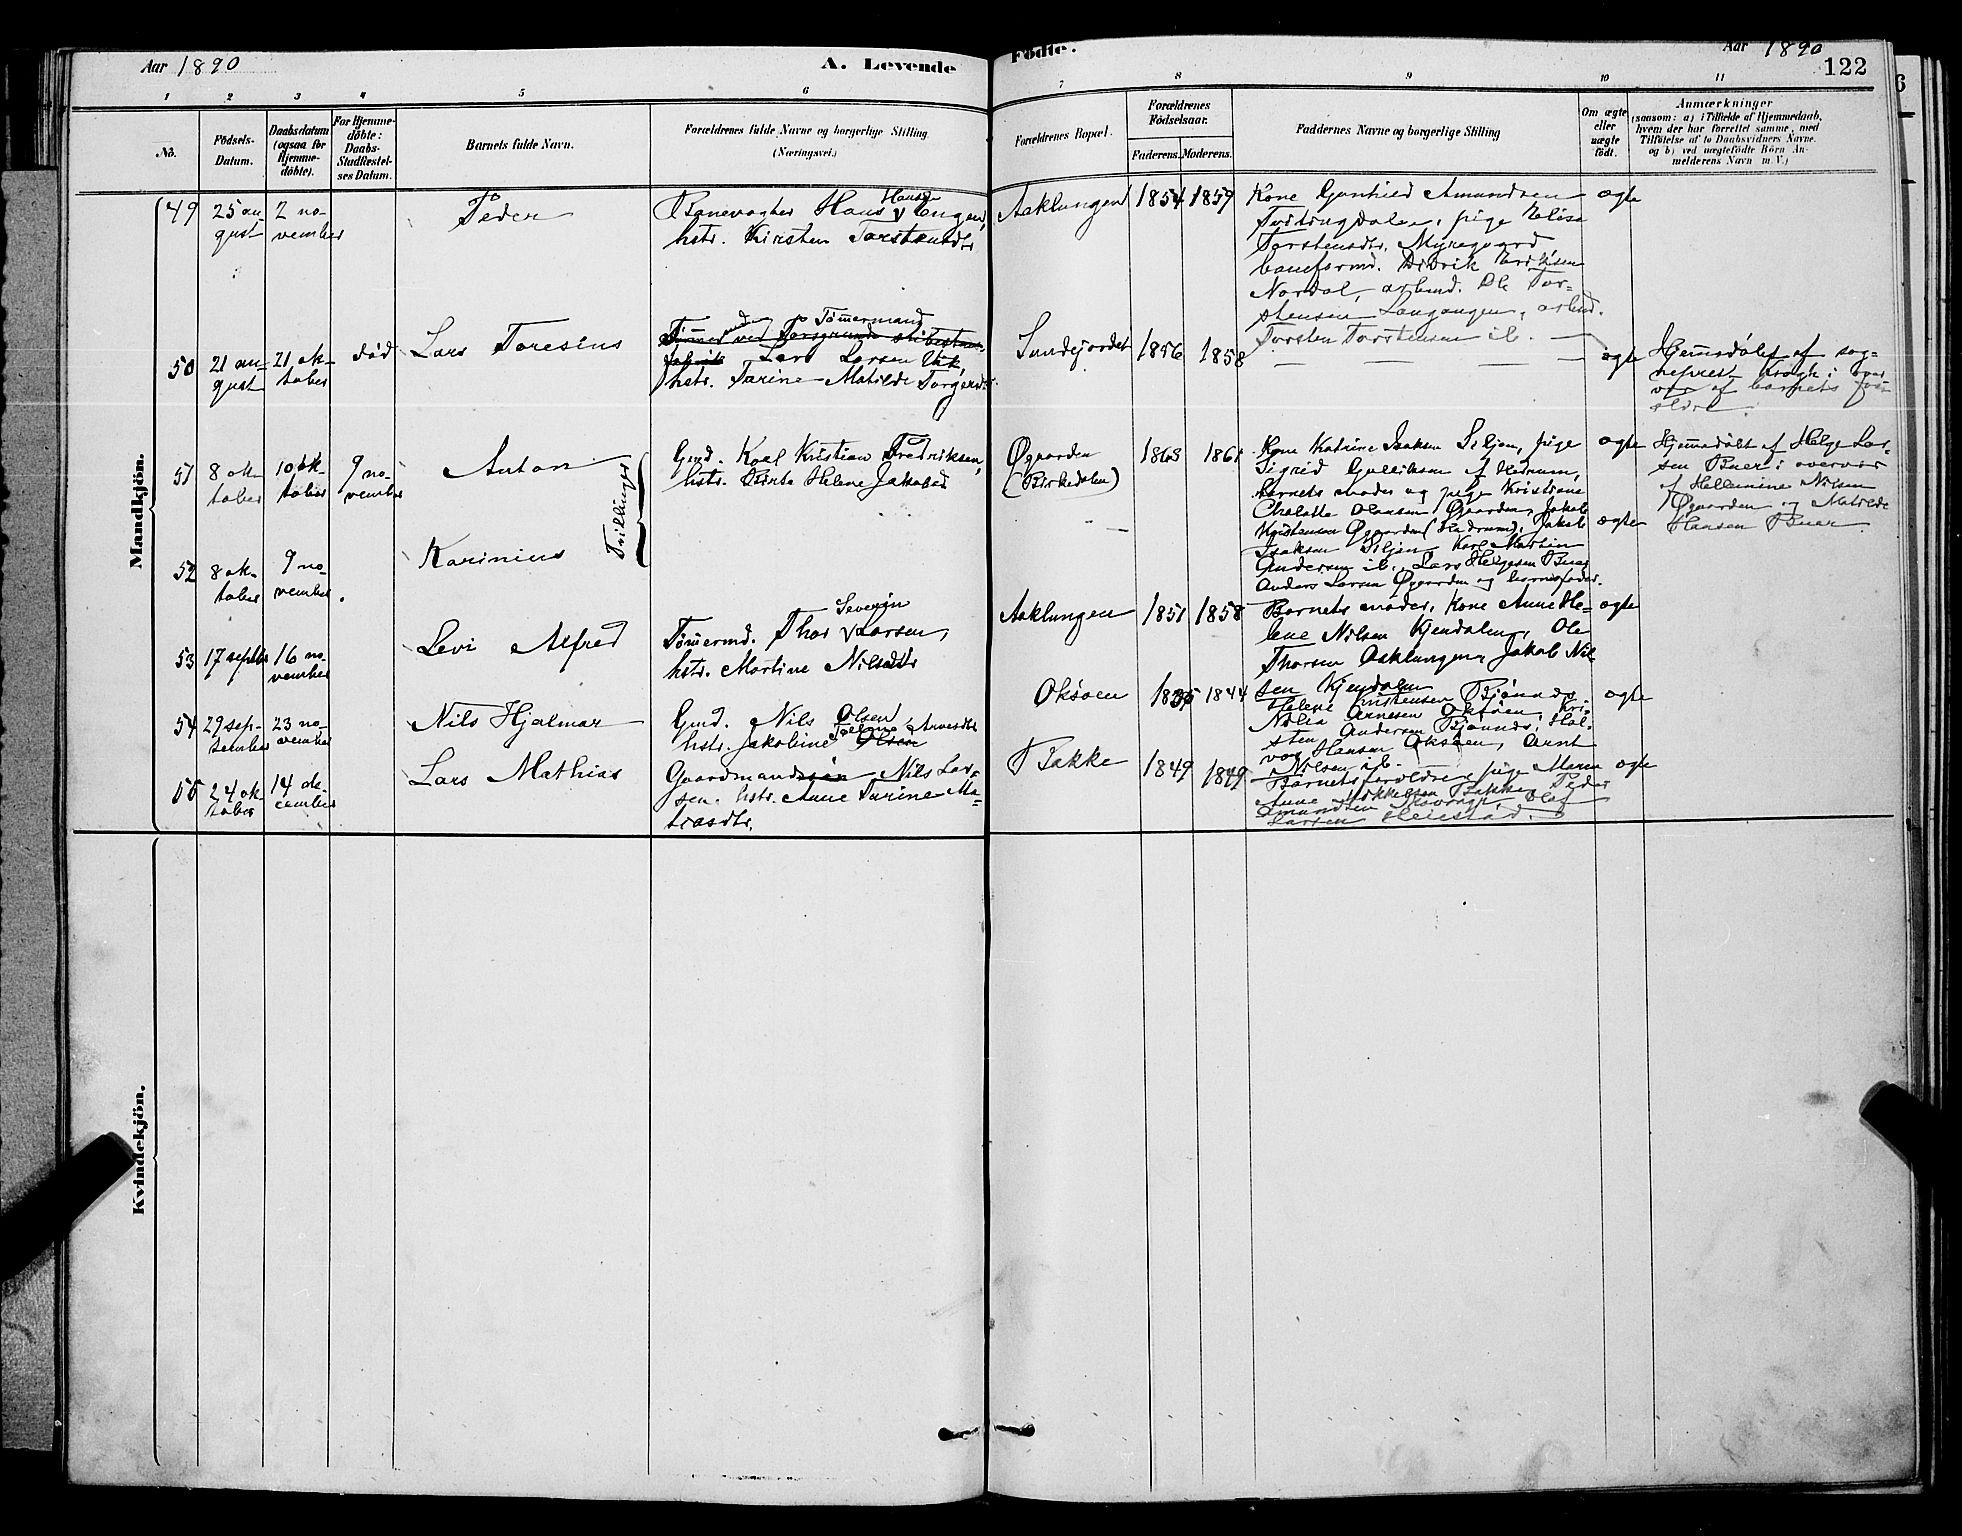 Aar 1890
A. Levende
Födte.
Aar 1890
122
1 2 3 4 5 6 7 8 9 10 11
No.
Födsels-
Datum.
Daabsdatum
(ogsaa for
Hjemme-
döbte).
For Hjemme-
döbte:
Daabs-
Stadfæstel-
ses Datum.
Barnets fulde Navn.
Forældrenes fulde Navne og borgerlige Stilling
(Næringsvei.)
Forældrenes Bopæl.
Forældrenes
Födselsaar.
Faderens. Moderens.
Faddernes Navne og borgerlige Stilling
Om ægte
eller
uægte
födt.
Anmærkninger
(saasom: a) i Tilfælde af Hjemmedaab,
hvem der har forrettet samme, med
Tilföielse af to Daabsvidners Navne.
og b) ved uægtefödte Börn An-
melderens Navn m. V.)
Mandkjön.
49
25 au-
gust
2 no-
vember
Peder
Banevogter Hans Hansen Engen,
hstr. Kirsten Torstensdtr
Aaklungen
1854 1859
Kone Gunhild Amundsen
pige Elise
Torstensdtr. Myregaard
baneformd. Didrik Eriksen
Nordal, arbmd. Ole Tor-
stensen Langangen, arbmd.
Torsten Torstensen ib.
ægte
50
21 au-
gust
21 ok-
tober
död
Lars Toresius
Tömmermand
Lars Larsen Vik,
hstr. Tarine Matilde Torgersdtr.
Sundejordet
1856 1858
— —
ægte
Hjemmedöbt af sog-
neprest Krogh i over
vær af barnets for-
ældre.
51
8 ok-
tober
10 ok-
tober
9 no-
vember
Anton
Tvillinger
Gmd. Karl Kristian Fredriksen,
hstr. Birte Helene Jakobsd
Øgaarden
(Birkedalen)
1863 1861
Kone Katrine Isaksen Siljan, pige
Sigrid Gulliksen af Hedrum,
barnets moder og pige Kristiane
Chalotte Hansen Øgaarden, Jakob
Kristensen Øgaarden (Hedrum), Jakob
Isaksen Siljan, Karl Martin
Andersen ib., Lars Helgesen Buer
Anders Larsen Øgaarden og barnefader.
ægte
Hjemmedöbt af Helge Lar-
sen Buer i overvær
af Hellemine Nilsen
Øgaarden og Matilde
Hansen Buer.
52
8 ok-
tober
9 no-
vember.
Karinius
—
ægte
53
17 septbr
16 no-
vember
Levi Alfred
Tömmermd. Thor Severin Larsen,
hstr. Martine Nilsdtr
Aaklungen
1851 1858
Barnets moder, Kone Anne He-
lene Nilsen Kjendalen, Ole
Thorsen Aaklungen, Jakob Nil-
sen Kjendalen
ægte
54
29 sep-
tember
23 no-
vember
Nils Hjalmar
Gmd. Nils Olsen
hstr. Jakobine Arnesdtr
Oksøen
1835 1844
Helene Kristensen Bjönnes
Arnesen Oksøen, Kri-
sten Andersen Bjönnes, Hal-
vor Hansen Oksøen, Arnt
Nilsen ib.
ægte
55
24 ok-
tober
14 de-
cember
Lars Mathias
Gaardmand Nils Lar-
sen, hstr. Anne Tarine Ma-
tiasdtr.
Bakke
1849 1849
Barnets forældre, pige Maren
Anne Mikkelsen Bakke, Peder
Amundsen Skavraak, Olaf
Larsen Heiestad.
ægte
Kvindekjön.